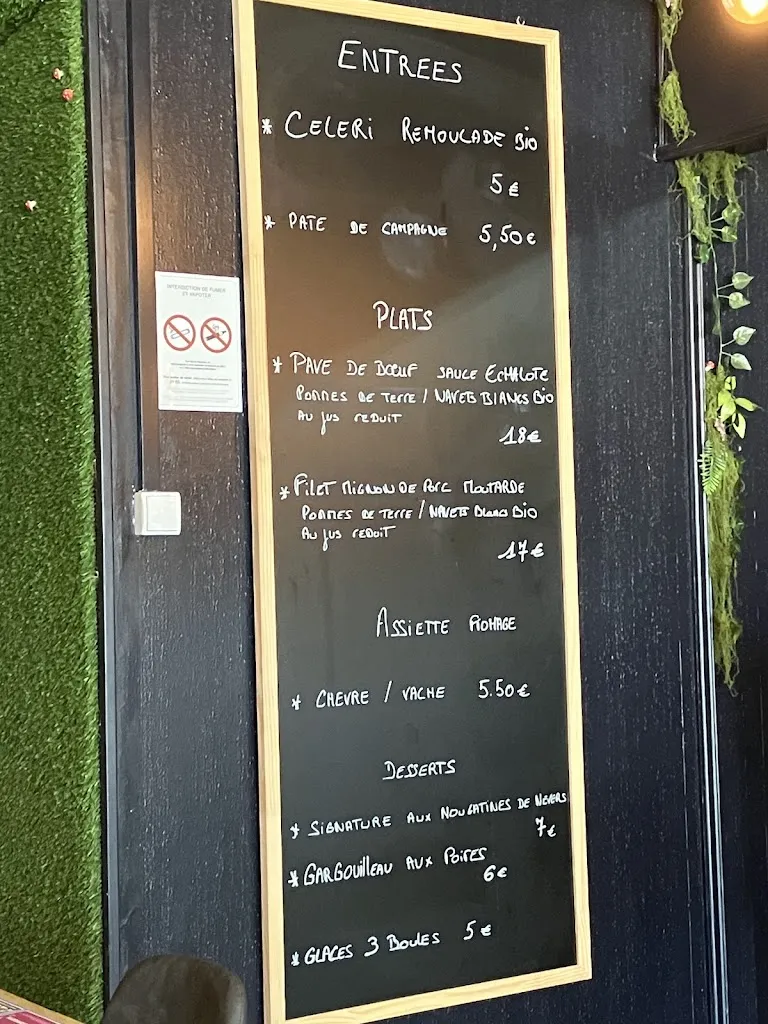 ENTREES
* CELERI REMOULADE BIO
5 €
* PATE DE CAMPAGNE 5,50 €
INTERDICTION DE FUMER
ET VAPOTER
PLATS
* PAVE DE BOEUF SAUCE ECHALOTE
POMMES DE TERRE / NAVETS BLANCS BIO
AU JUS REDUIT
18 €
* FILET MIGNON DE PORC MOUTARDE
POMMES DE TERRE / NAVETS BLANCS BIO
AU JUS REDUIT
17 €
ASSIETTE FROMAGE
* CHEVRE / VACHE 5.50 €
DESSERTS
* SIGNATURE AUX NOUGATINES DE NEVERS
7 €
* GARGOUILLEAU AUX POIRES
6 €
* GLACES 3 BOULES 5 €